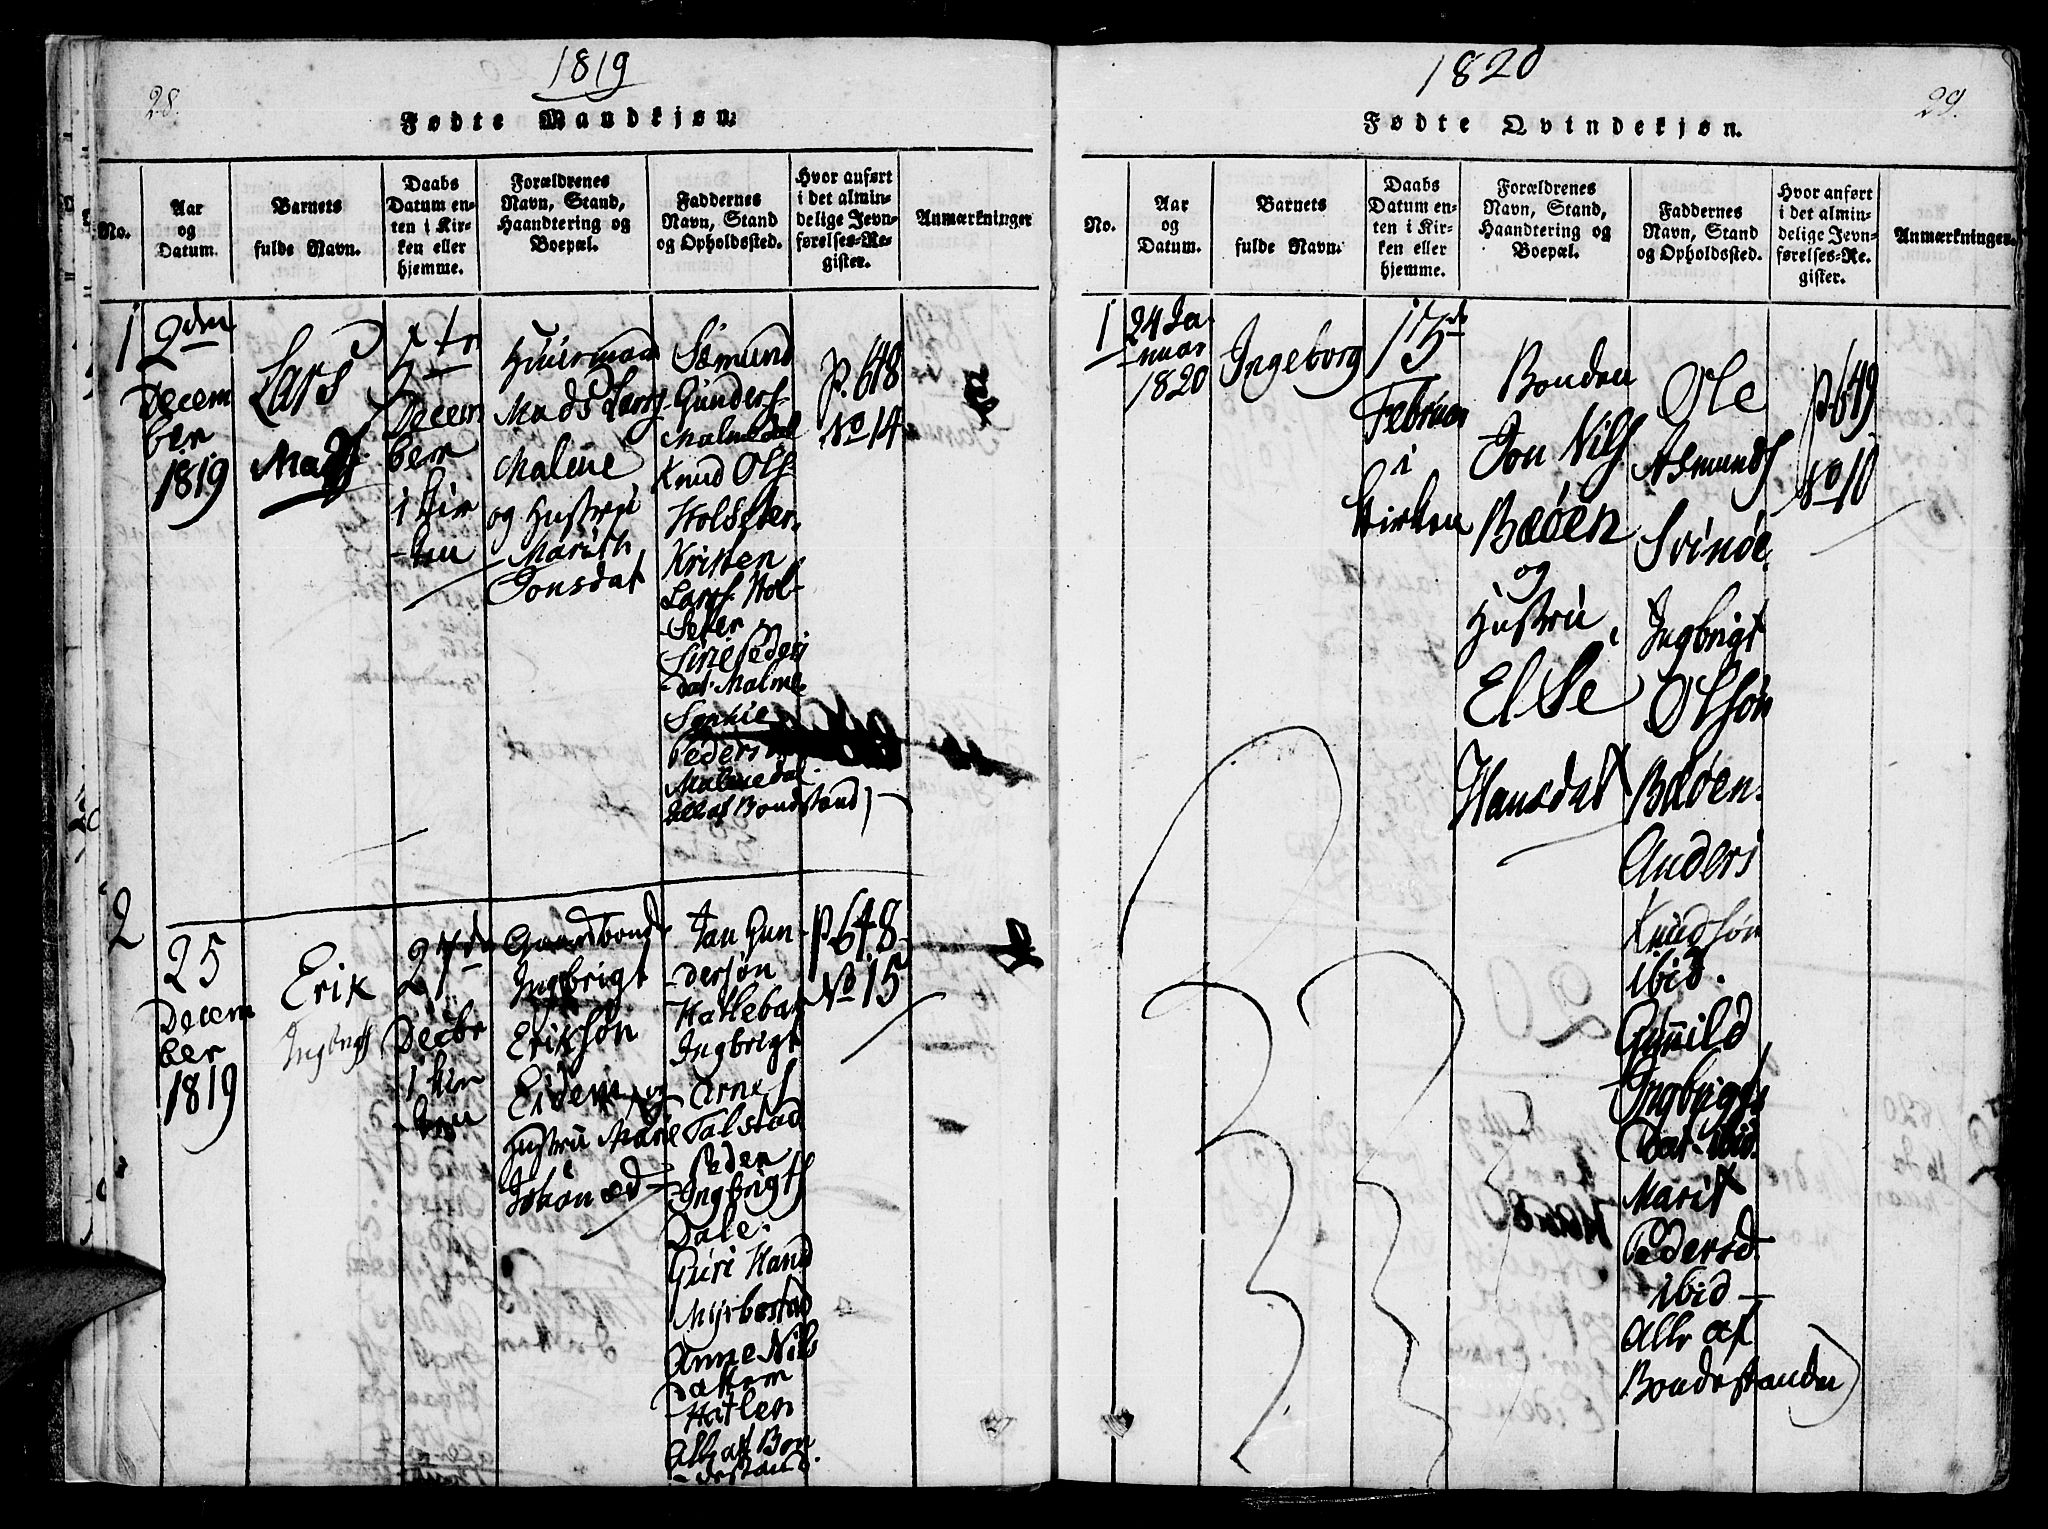 28.
1819
Fødte Mandkjøn.
No.
Aar
og
Datum.
Barnets
fulde Navn.
Daabs
Datum en-
ten i Kir-
ken eller
hjemme.
Forældrenes
Navn, Stand,
Haandtering og
Boepæl.
Faddernes
Navn, Stand
og Opholdssted.
Hvor anført
i det almin-
delige Jevn-
førelses-Re-
gister.
Anmærkninger
1
2den
Decem
ber
1819
Lars
Decem
ber
i Kir
-ken
Huusmand
Mads Larss
Malme
og Hustrü
Marith
Jonsdat
Gunders-
Malmedal
Knud Ols-
Holseter
Kristen
Larss. Hol-
-Seter
Siri Peders
-dat. Malme
Peders
Malmedal.
Alle af Bondstand
P. 648
No 14
2
25
Decem
ber
1819
Erik
Ingbrigts
27de
Decbr
i Kir
-ken
Gaardbond
Ingbrigt
Erikson
Eidem og
Hustrü Mari
Johansd
Jan Gun-
-dersøn
Hatlebak
Ingbrigt
Arnes
Talstad
Peder
Ingbrigts
Dale
Güri Hansd
Myrbostad
Anne Nils
datter
Hatlen
Alle af Bon
-destand.
P. 648
No 15
1820
29.
Fødte Qvindekjøn.
No.
Aar
og
Datum.
Barnets
fulde Navn.
Daabs
Datum en-
ten i Kir-
ken eller
hjemme.
Forældrenes
Navn, Stand,
Haandtering og
Boepæl.
Faddernes
Navn, Stand
og Opholdssted.
Hvor anført
i det almin-
delige Jevn-
førelses-Re-
gister.
Anmærkninger.
1
24 Ja-
-nuar
1820
Ingeborg
13de
Februar
i
Kirken
Bonden
Jon Nils
Bøen
og
Hustrü
Else
Hansdat
Ole
Asmunds
Svinøe
Ingbrigt
Olsøn
Bøen.
Anders
Knudsøn
ibid.
Gunnild
Ingbrigts
Dat ibid.
Marit
Pedersd
ibid
Alle af
Bondestanden
P. 649
No 10